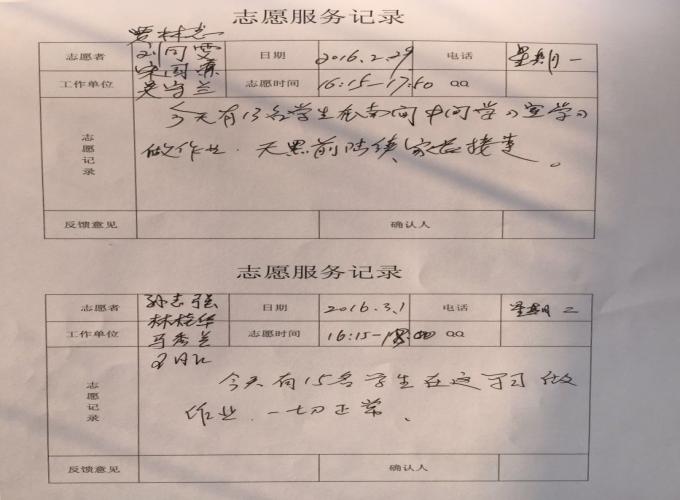 志愿服务记录
贾林志
志愿者 刘同雯 日期 2016.2.29 电话 星期一
宋国霖
工作单位 吴守兰 志愿时间 16:15-17:50 QQ
志愿记录
今天有13名学生在南间中间学习室学习
做作业.天黑前陆续家长接走。
反馈意见 确认人
志愿服务记录
志愿者 孙志强 日期 2016.3.1 电话 星期二
林桂华
工作单位 马秀兰 志愿时间 16:15- QQ
志愿记录
今天有15名学生在这学习做
作业.一切正常.
反馈意见 确认人